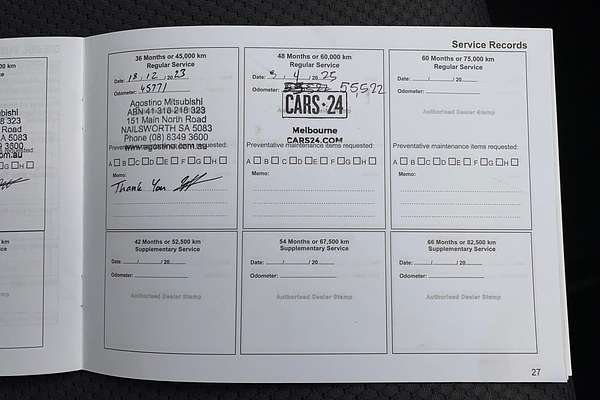 Service Records
36 Months or 45,000 km
Regular Service
Date: 18, 12, 20 23
Odometer: 45771
Agostino Mitsubishi
ABN 41 318 218 323
151 Main North Road
NAILSWORTH SA 5083
Phone (08) 8349 3600
www.agostino.com.au
Preventative maintenance items requested:
A B C D E F G H
Memo:
Thank You
48 Months or 60,000 km
Regular Service
Date: 3, 4, 20 25
Odometer: 55522
CARS24
Melbourne
CARS24.COM
Preventative maintenance items requested:
A B C D E F G H
Memo:
60 Months or 75,000 km
Regular Service
Date: / / 20
Odometer:
Authorised Dealer Stamp
Preventative maintenance items requested:
A B C D E F G H
Memo:
42 Months or 52,500 km
Supplementary Service
Date: / / 20
Odometer:
Authorised Dealer Stamp
54 Months or 67,500 km
Supplementary Service
Date: / / 20
Odometer:
Authorised Dealer Stamp
66 Months or 82,500 km
Supplementary Service
Date: / / 20
Odometer:
Authorised Dealer Stamp
27
00 km
tsubishi
8 323
Road
A 5083
3600
om.au
requested:
G H
km